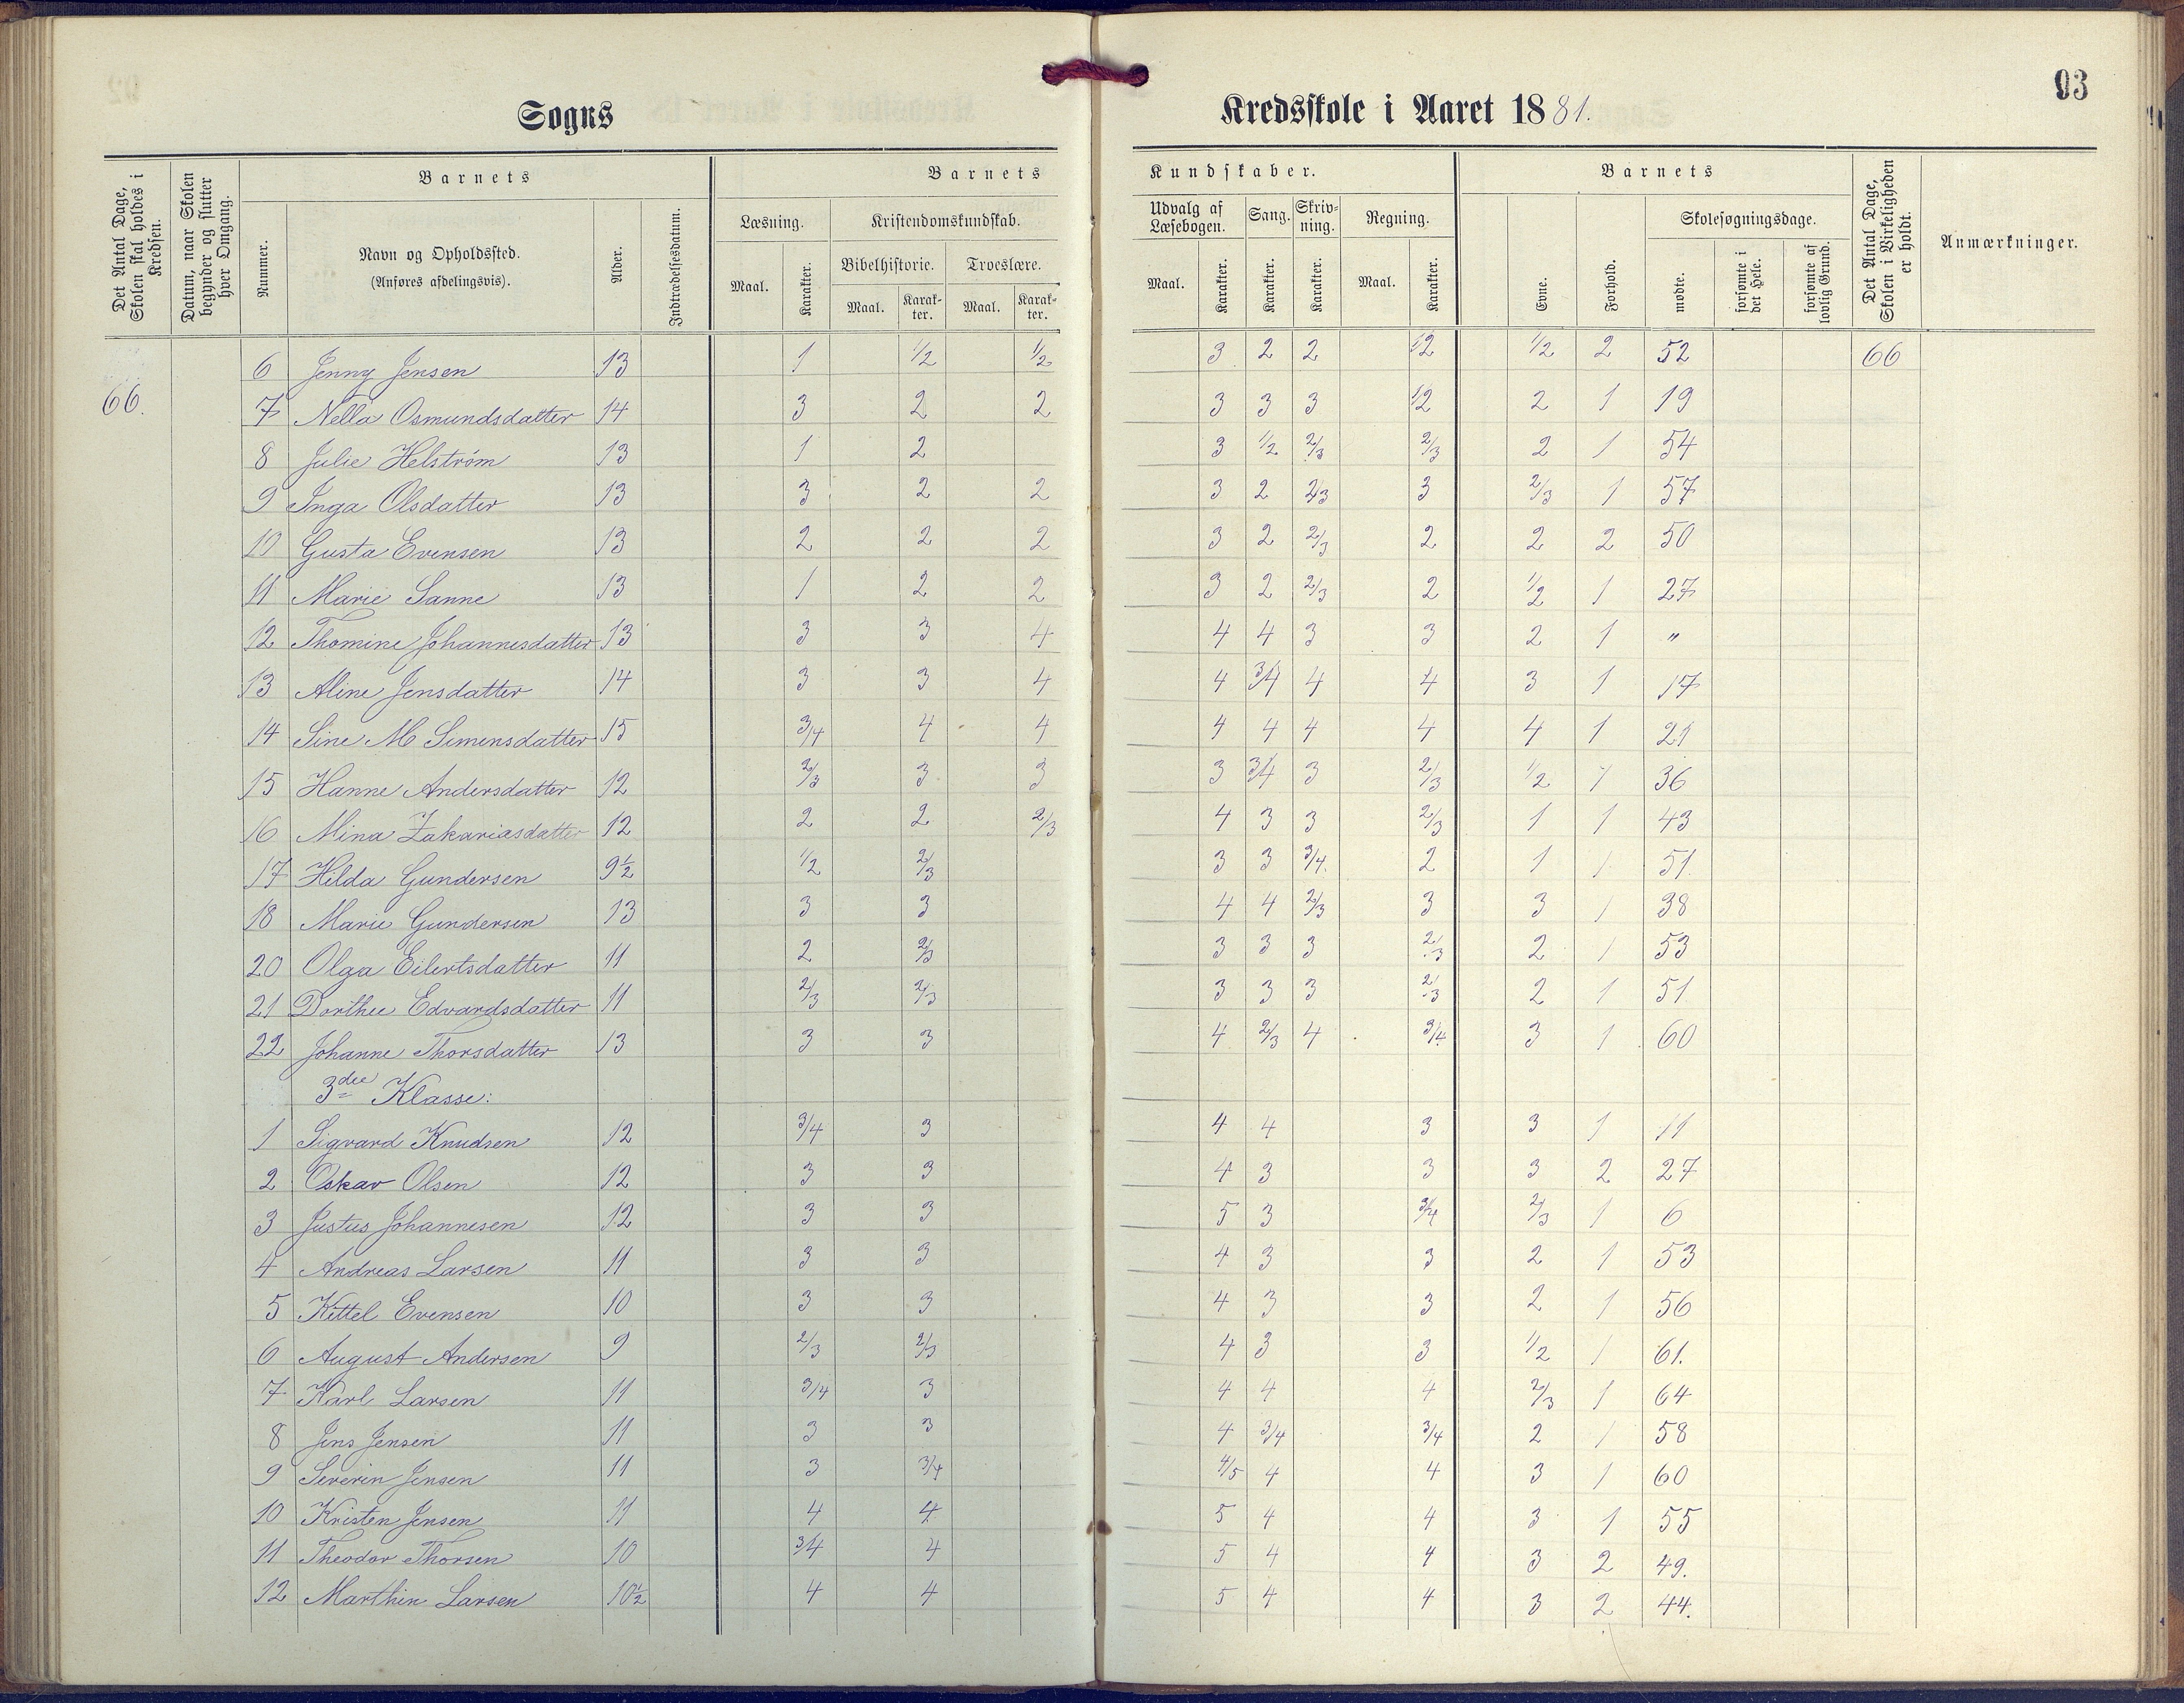 93
Sogns Kredsskole i Aaret 1881.
Det Antal Dage, Skolen skal holdes i Kredsen.
Datum, naar Skolen begynder og slutter hver Omgang.
Barnets
Nummer.
Navn og Opholdssted.
(Anføres afdelingsvis).
Alder.
Indtrædelsesdatum.
Barnets Kundskaber.
Læsning.
Maal. Karakter.
Kristendomskundskab.
Bibelhistorie. Troeslære.
Maal. Karakter. Maal. Karakter.
Udvalg af Læsebogen. Sang. Skrivning. Regning.
Maal. Karakter. Karakter. Karakter. Maal. Karakter.
Barnets
Evne. Forhold.
Skolesøgningsdage.
mødte. forsømte i det Hele. forsømte af lovlig Grund.
Det Antal Dage, Skolen i Virkeligheden er holdt.
Anmærkninger.
6 Jenny Jensen 13 1 1/2 1/2 3 2 2 1/2 1/2 2 52 66
66. 7 Nella Osmundsdatter 14 3 2 2 3 3 3 1/2 2 1 19
8 Julie Helström 13 1 2 3 1/2 2/3 2/3 2 1 54
9 Inga Olsdatter 13 3 2 2 3 2 2/3 3 2/3 1 57
10 Gusta Evensen 13 2 2 2 3 2 2/3 2 2 2 50
11 Marie Sanne 13 1 2 2 3 2 2/3 2 1/2 1 27
12 Thomine Johannesdatter 13 3 3 4 4 4 3 3 2 1 "
13 Aline Jensdatter 14 3 3 4 4 3/4 4 4 3 1 17
14 Sine M Simensdatter 15 3/4 4 4 4 4 4 4 4 1 21
15 Hanne Andersdatter 12 2/3 3 3 3 3/4 3 2/3 1/2 1 36
16 Mina Zakariasdatter 12 2 2 2/3 4 3 3 2/3 1 1 43
17 Hilda Gundersen 9½ 1/2 2/3 3 3 3/4. 2 1 1 51.
18 Marie Gundersen 13 3 3 4 4 2/3 3 3 1 38
20 Olga Eilertsdatter 11 2 2/3 3 3 3 2/3 2 1 53
21 Dorthee Edvardsdatter 11 2/3 2/3 3 3 3 2/3 2 1 51
22 Johanne Thorsdatter 13 3 3 4 2/3 4 3/4 3 1 60
3die Klasse:
1 Sigvard Knudsen 12 3/4 3 4 4 3 3 1 11
2 Oskar Olsen 12 3 3 4 3 3 3 2 27
3 Justus Johannesen 12 3 3 5 3 3/4 2/3 1 6
4 Andreas Larsen 11 3 3 4 3 3 2 1 53
5 Kittel Evensen 10 3 3 4 3 3 2 1 56
6 August Andersen 9 2/3 2/3 4 3 3 1/2 1 61.
7 Karl Larsen 11 3/4 3 4 4 4 2/3 1 64
8 Jens Jensen 11 3 3 4 3/4 3/4 2 1 58
9 Severin Jensen 11 3 3/4 4/5 4 4 3 1 60
10 Kristen Jensen 11 4 4 5 4 4 3 1 55
11 Theodor Thorsen 10 3/4 4 5 4 4 3 2 49.
12 Marthin Larsen 10½ 4 4 5 4 4 3 2 44.